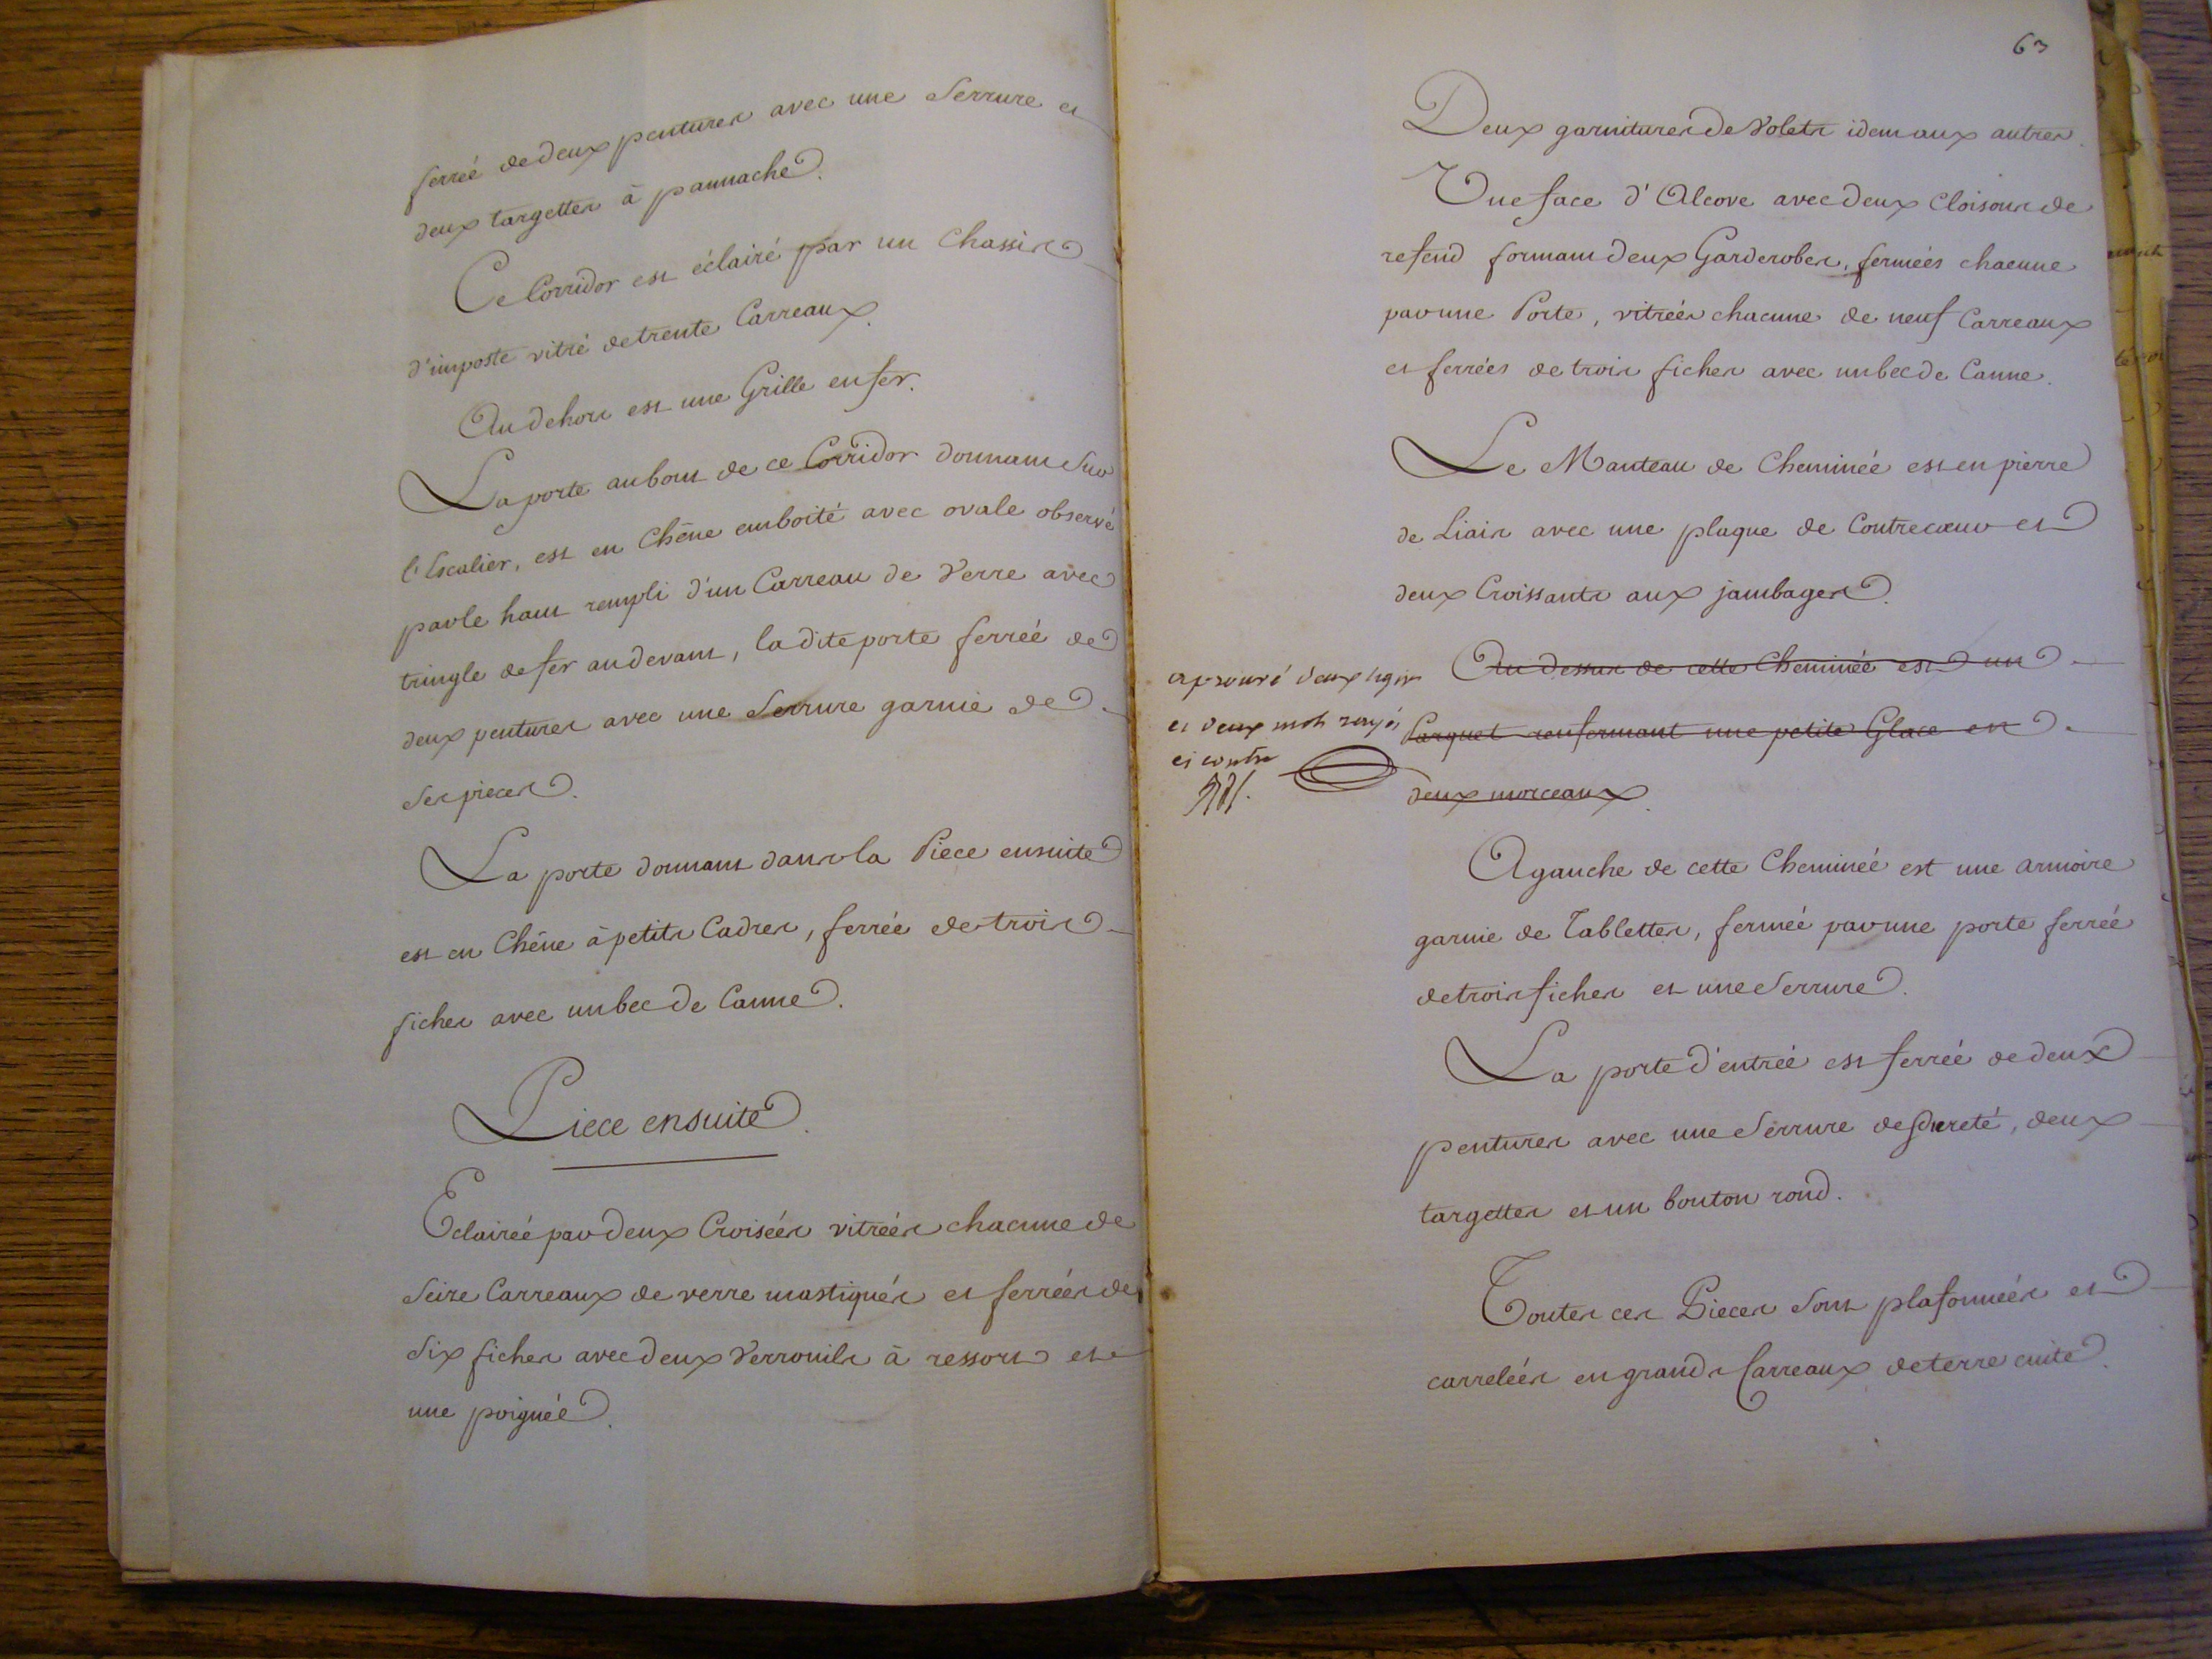 ferrée de deux pentures avec une Serrure et
deux targettes à pannache.
Ce Corridor est éclairé par un Chassis
d'imposte vitré de trente Carreaux.
Au dehors est une Grille en fer.
La porte au bout de ce Corridor donnant Sur
l'Escalier, est en Chêne emboité avec ovale observé
par le haut rempli d'un Carreau de Verre avec
tringle de fer au devant, la dite porte ferrée de
deux pentures avec une Serrure garnie de
Ses pieces.
La porte donnant dans la Piece ensuite
est en Chêne à petits Cadres, ferrée de trois
fiches avec un bec de Canne.
Piece ensuite.
Eclairée par deux Croisées vitrées chacune de
Seize Carreaux de verre mastiqués et ferrées de
Six fiches avec deux Verrouils à ressort et
une poignée.
63
Deux garnitures de Volets idem aux autres.
Une face d'Alcove avec deux Cloisons de
refend formant deux Garderobes, fermées chacune
par une Porte, vitrées chacune de neuf Carreaux
et ferrées de trois fiches avec un bec de Canne.
Le Manteau de Cheminée est en pierre
de Liais avec une plaque de Contrecœur et
deux Croissants aux jambages.
Au dessus de cette Cheminée est un
Parquet renfermant une petite Glace en
deux morceaux.
approuvé deux lignes
et deux mots rayés
ci contre
A gauche de cette Cheminée est une armoire
garnie de Tablettes, fermée par une porte ferrée
de trois fiches et une Serrure.
La porte d'entrée est ferrée de deux
pentures avec une Serrure de Sureté, deux
targettes et un bouton rond.
Toutes ces Pieces Sont plafonnées et
carrelées en grands Carreaux de terre cuite.